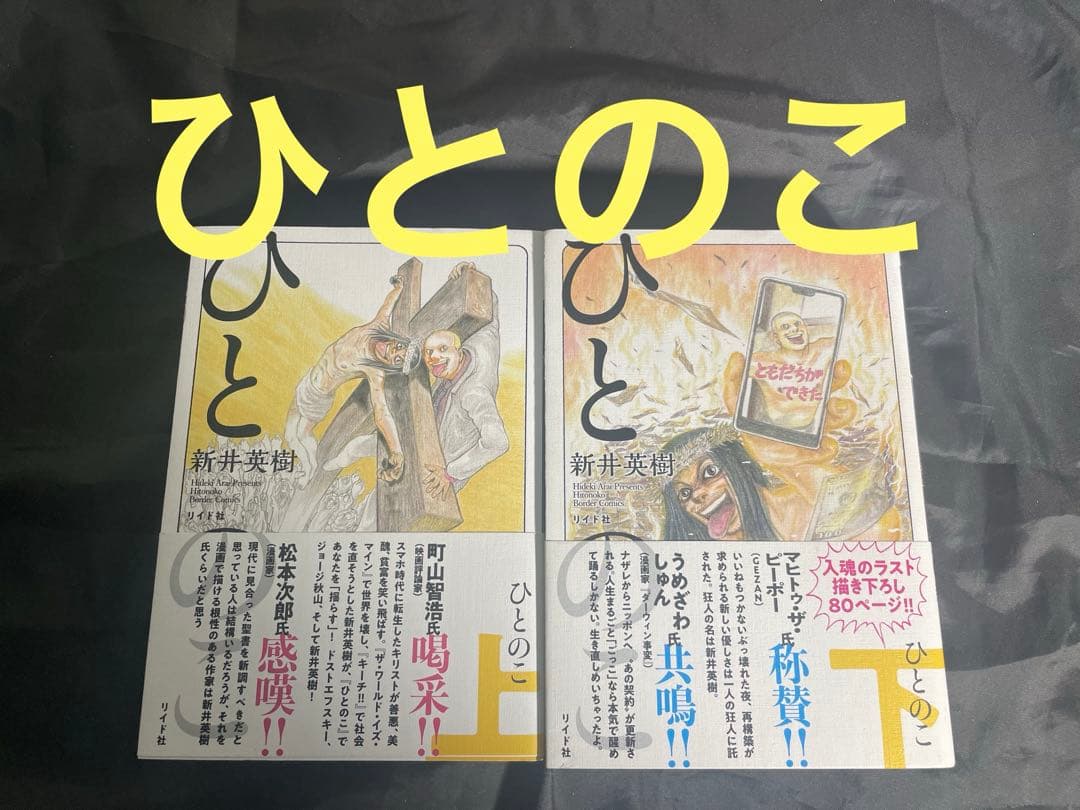 ひとのこ
ひとのこ
新井英樹
Hideki Arai Presents
Hitonoko
Border Comics
リイド社
ひとのこ
上
町山智浩氏
(映画評論家)
喝采!!
スマホ時代に転生したキリストが善悪、美
醜、貧富を笑い飛ばす。『ザ・ワールド・イズ・
マイン』で世界を壊し、『キーチ!!』で社会
を直そうとした新井英樹が、『ひとのこ』で
あなたを「揺らす」! ドストエフスキー、
ジョージ秋山、そして新井英樹!
松本次郎氏
(漫画家)
感嘆!!
現代に見合った聖書を新調すべきだと
思っている人は結構いるだろうが、それを
漫画で描ける根性のある作家は新井英樹
氏くらいだと思う
リイド社
ひとのこ
新井英樹
Hideki Arai Presents
Hitonoko
Border Comics
リイド社
ともだちが
できた
入魂のラスト
描き下ろし
80ページ!!
ひとのこ
下
マヒトゥ・ザ・
ピーポー氏
(GEZAN)
称賛!!
いいねもつかないぶっ壊れた夜、再構築が
求められる新しい優しさは一人の狂人に託
された。狂人の名は新井英樹。
うめざわ
しゅん氏
(漫画家『ダーウィン事変』)
共鳴!!
ナザレからニッポンへ、〝あの契約〟が更新さ
れる。人生まるごと「ごっこ」なら本気で醒め
て踊るしかない。生き直しめいちゃったよ。
リイド社